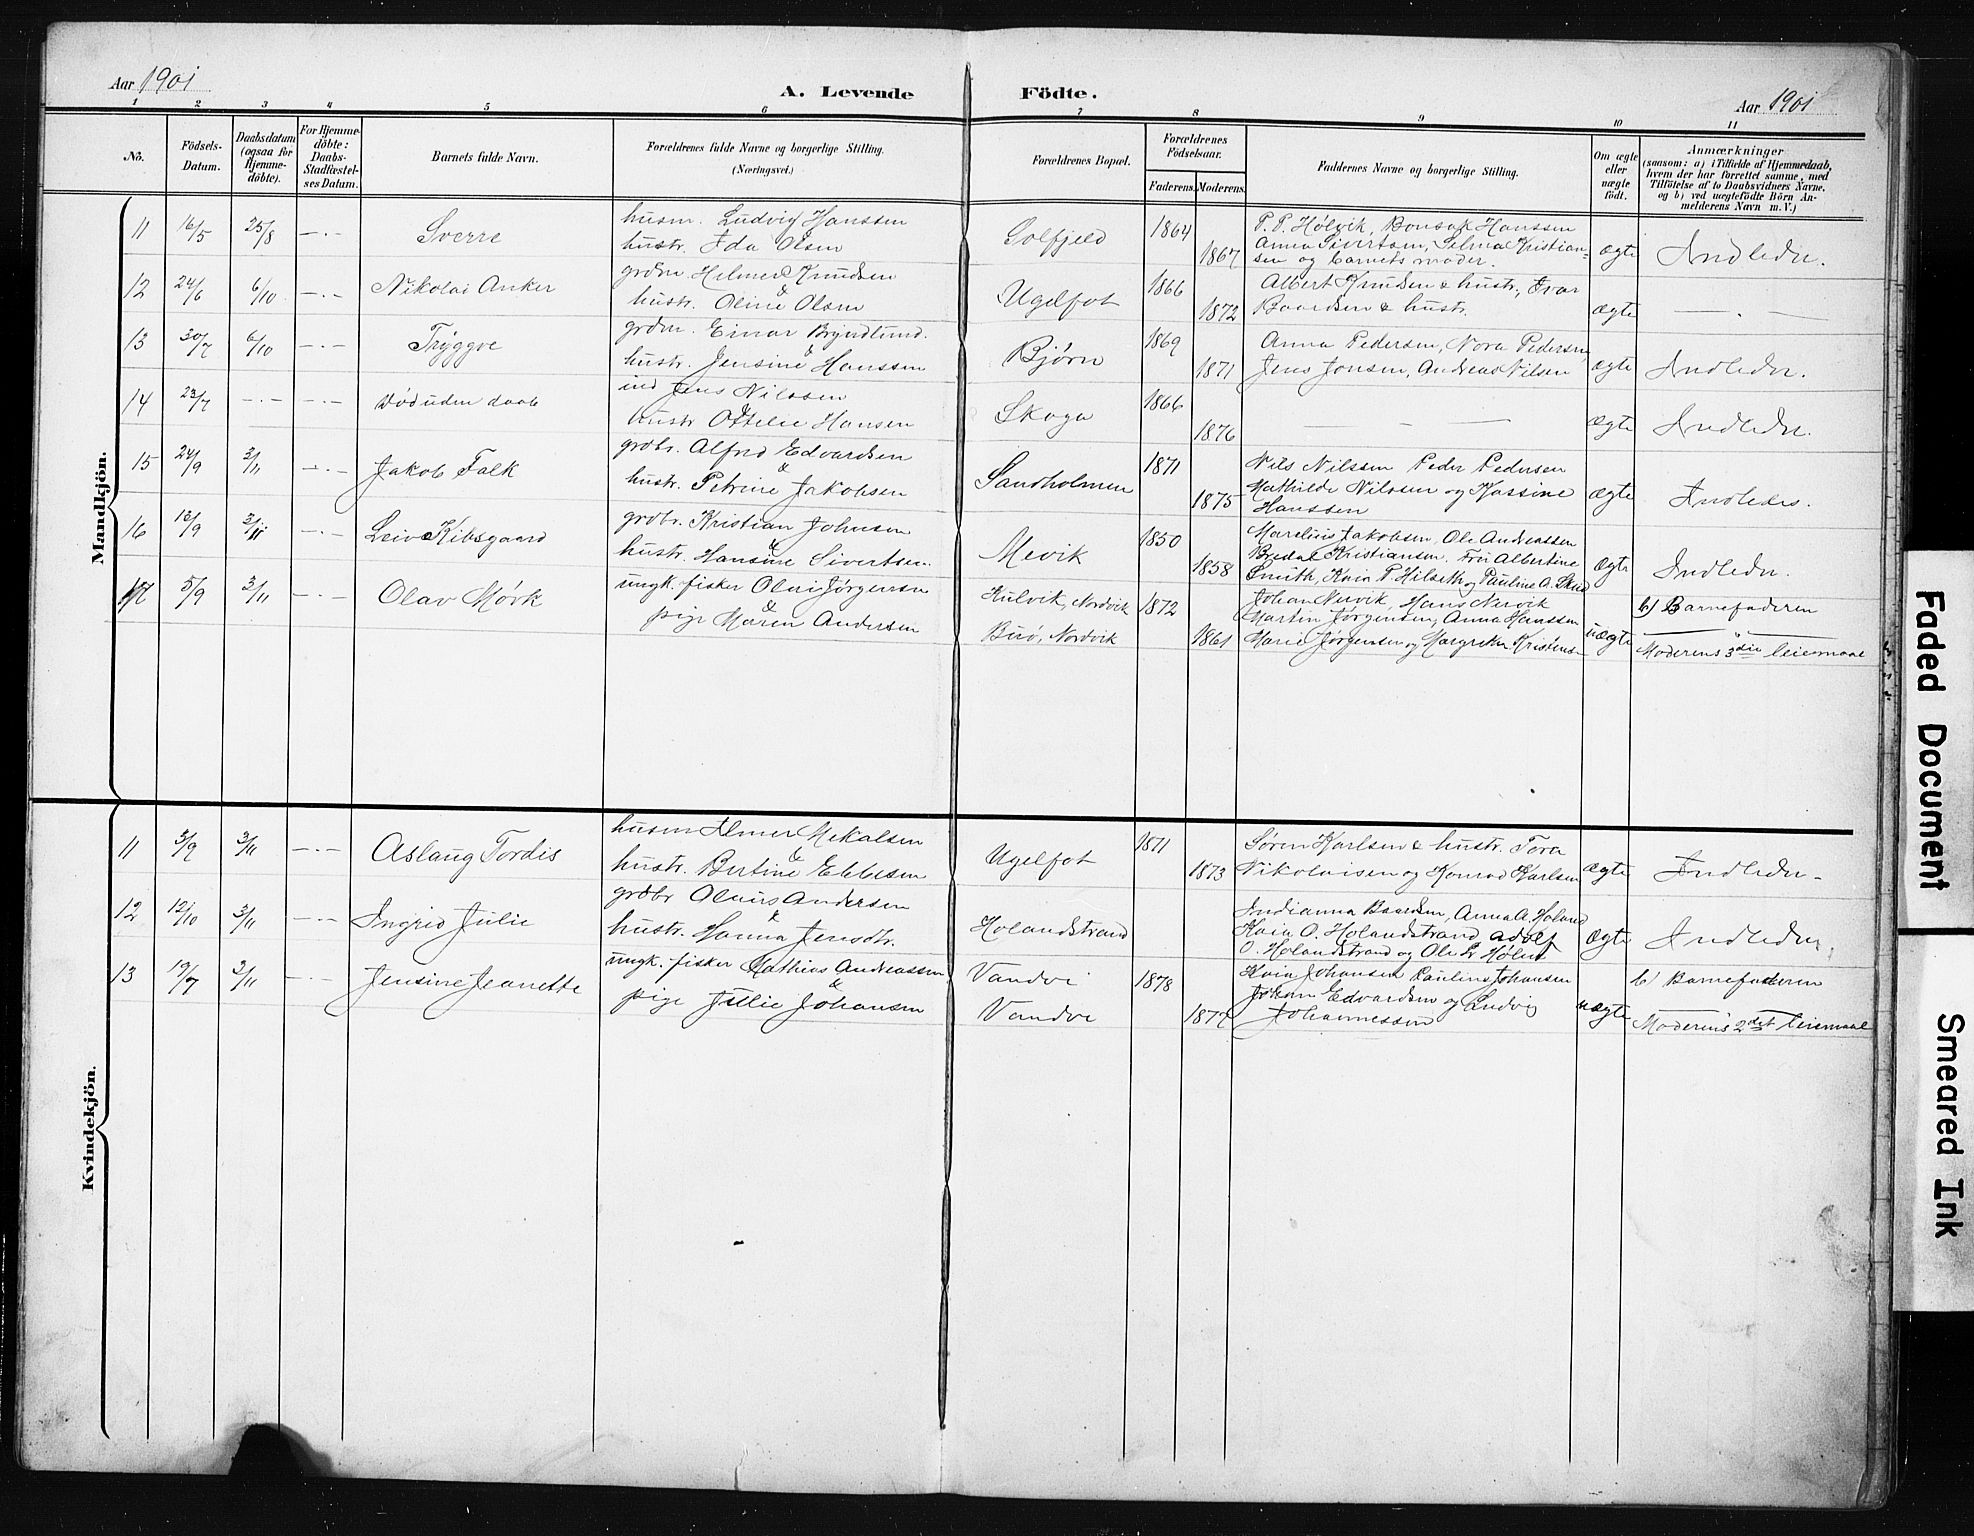 Aar 1901
A. Levende Födte.
Aar 1901
1 2 3 4 5 6 7 8 9 10 11
No.
Födsels-Datum.
Daabsdatum (ogsaa for Hjemme-döbte).
For Hjemme-döbte: Daabs-Stadfæstel-ses Datum.
Barnets fulde Navn.
Forældrenes fulde Navne og borgerlige Stilling.
(Næringsvei.)
Forældrenes Bopæl.
Forældrenes Födselsaar.
Faderens. Moderens.
Faddernes Navne og borgerlige Stilling.
Om ægte eller uægte födt.
Anmærkninger
(saasom: a) i Tilfælde af Hjemmedaab,
hvem der har forrettet samme, med
Tilföielse af to Daabsvidners Navne,
og b) ved uægtefödte Börn An-
melderens Navn m. V.)
Mandkjön.
11 16/5 25/8 —·— Sverre husm. Ludvig Hanssen Solfjeld 1864 P. P. Hølvik, Bonsak Hanssen
hustr. Ida Olsen 1867 Anna Sivertsen, Selma Kristian-
sen og barnets moder. ægte Indledn.
12 24/6 6/10 —·— Nikolai Anker grdm. Helmer Knudsen Ugelfot 1866 Albert Knudsen & hustr., Ivar
& hustr. Oline Olsen 1872 Baardsen & hustr. ægte — · —
13 30/7 6/10 —·— Tryggve grdm. Einar Bryndlund. Bjørn 1869 Anna Pedersen, Nora Pedersen
& hustr. Jensine Hanssen 1871 Jens Jonsen, Andreas Nilsen ægte Indledn.
14 23/7 —·— —·— Død uden daab ind Jens Nilssen Skaga 1866
& hustr Ottelie Hansen 1876 — - — ægte Indledn.
15 24/9 3/11 —·— Jakob Falk grdbr. Alfred Edvardsen Sandholmen 1871 Nils Nilssen Peder Pedersen
& hustr. Petrine Jakobsen 1875 Mathilde Nilssen og Kassine
Hanssen ægte Indledn.
16 13/9 3/11 —·— Leiv Kibsgaard grdbr. Kristian Johnsen Mevik 1850 Marelius Jakobsen, Ole Andreassen
& hustr. Hansine Sivertsen. 1858 Bredal Kristiansen, Frk Albertine
Smith, Kaia P. Hilseth og Pauline A. ægte Indledn.
17 5/9 3/11 —·— Olav Mørk ungk. fisker Olai Jørgensen Kulvik, Nordvik 1872 Johan Nervik, Hans Nervik
Martin Jørgensen, Anna Hanssen b) Barnefaderen
& pige Maren Andersen Buø, Nordvik 1861 Marie Jørgensen og Margrethe Kristensen uægte Moderens 3die leiermaal
Kvindekjön.
11 3/9 3/11 —·— Aslaug Tordis husm Elmer Mekalsen Ugelfot 1871 Søren Karlsen & hustr. Tora
& hustr. Bertine Ebbesen 1873 Nikolaisen og Konrad Karlsen ægte Indledn.
12 12/10 3/11 —·— Ingrid Julie grdbr Oluirs Andersen Holandstrand Indianna Baardsen, Anna A. Holand
& hustr. Hanna Jensdtr. Kaia O. Holandstrand Adolf
O. Holandstrand og Ole ægte Indledn.
13 19/7 3/11 —·— Jensine Jeanette ungk. fisker Mathias Andreassen Vandve 1878 Kaia Johansen Pauline Johansen b) Barnefaderen
& pige Jullie Johansen Vandve 1877 Johan Edvardsen og Ludvig
Johannessen uægte Moderens 2det leiermaal
Faded Document
Smeared Ink